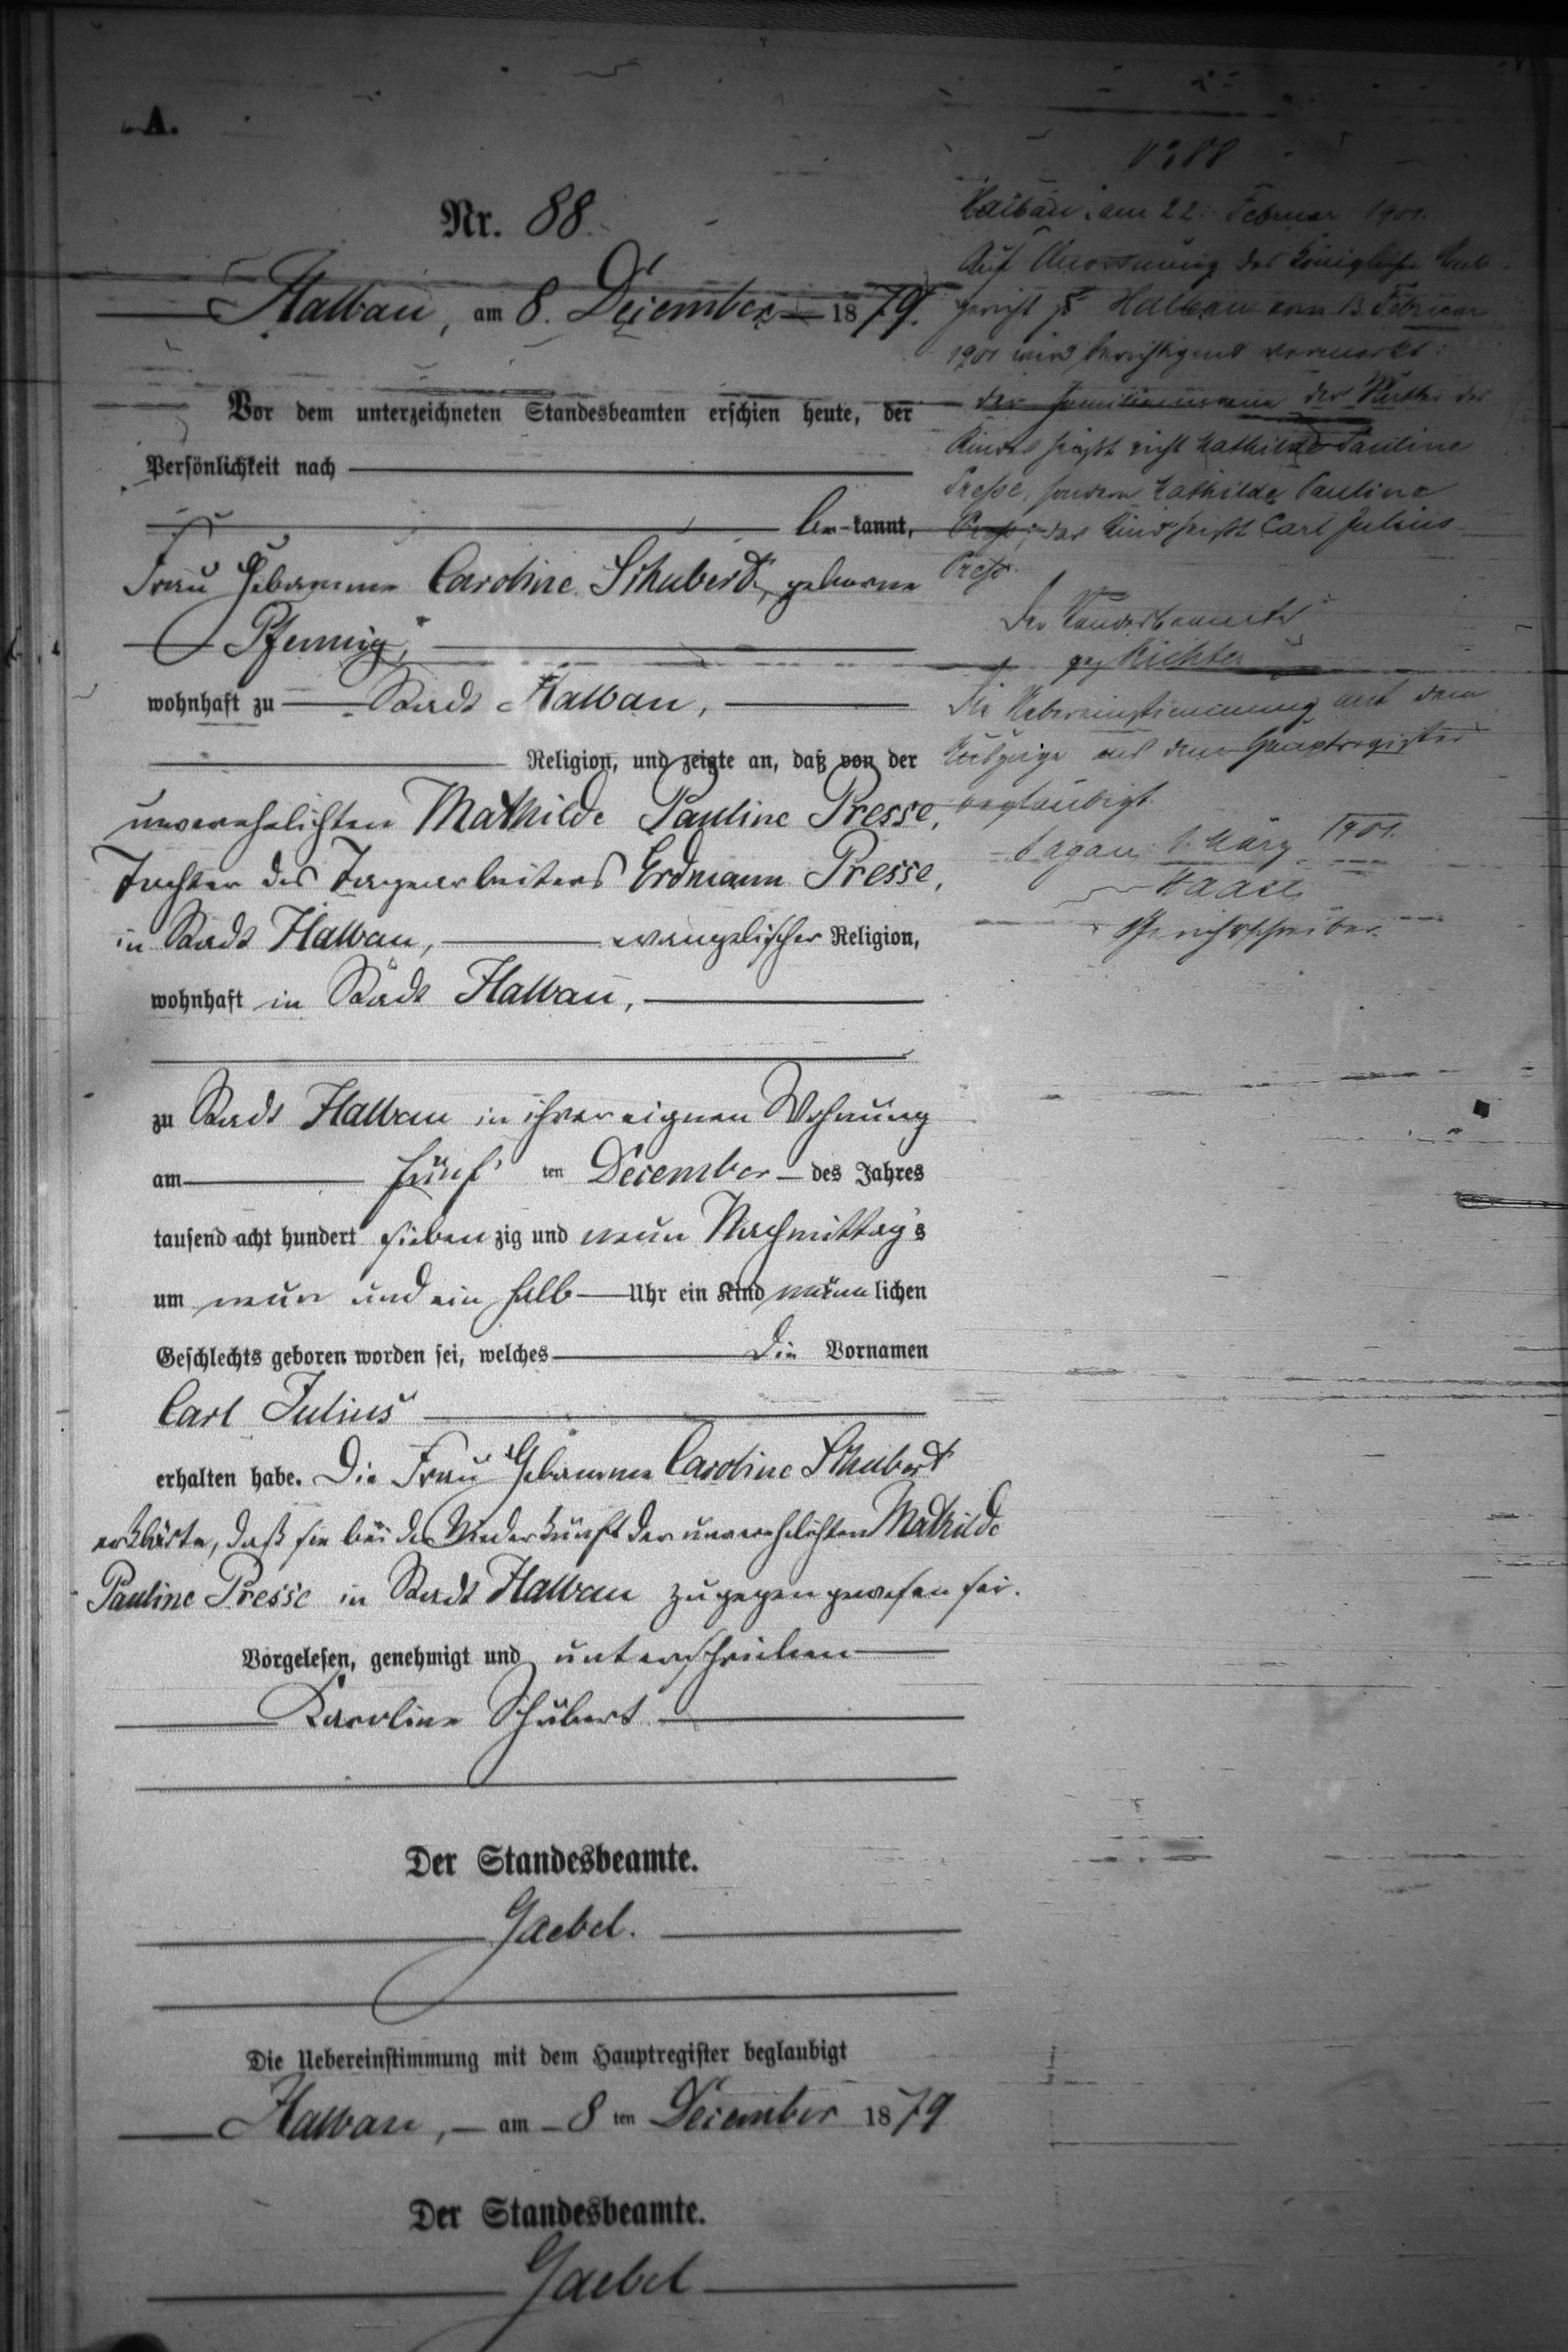 A.
Nr. 88.
Halbau, am 8. December 1879.
Vor dem unterzeichneten Standesbeamten erschien heute, der
Persönlichkeit nach
be-kannt,
Frau Hebamme Caroline Schubert, geborne
Pfennig,
wohnhaft zu Stadt Halbau,
Religion, und zeigte an, daß von der
unverehelichten Mathilde Pauline Presse,
Tochter des Tagearbeiters Erdmann Presse,
in Stadt Halbau, evangelischer Religion,
wohnhaft in Stadt Halbau,
zu Stadt Halbau in ihrer eignen Wohnung
am fünf ten December des Jahres
tausend acht hundert sieben zig und neun Nachmittag's
um neun und ein halb Uhr ein Kind männ lichen
Geschlechts geboren worden sei, welches die Vornamen
Carl Julius
erhalten habe. Die Frau Hebamme Caroline Schubert
erklärte, daß sie bei der Niederkunft der unverehelichten Mathilde
Pauline Presse in Stadt Halbau zugegen gewesen sei.
Vorgelesen, genehmigt und unterschrieben
Karoline Schubert
Der Standesbeamte.
Gaebel.
Die Uebereinstimmung mit dem Hauptregister beglaubigt
Halbau, am 8 ten December 1879
Der Standesbeamte.
Gaebel
88
Halbau, am 22. Februar 1901.
Auf Anordnung des Königlichen Amts-
gericht zu Halbau vom 13. Februar
1901 wird berichtigend vermerkt:
der Familienname der Mutter des
Kindes heißt nicht Mathilde Pauline
Presse, sondern Mathilde Pauline
Preß; das Kind heißt Carl Julius
Preß.
Der Standesbeamte
gez Richter
Die Uebereinstimmung mit dem
Auszuge aus dem Hauptregister
beglaubigt.
Sagan, 1. März 1901.
Haase
Gerichtsschreiber.